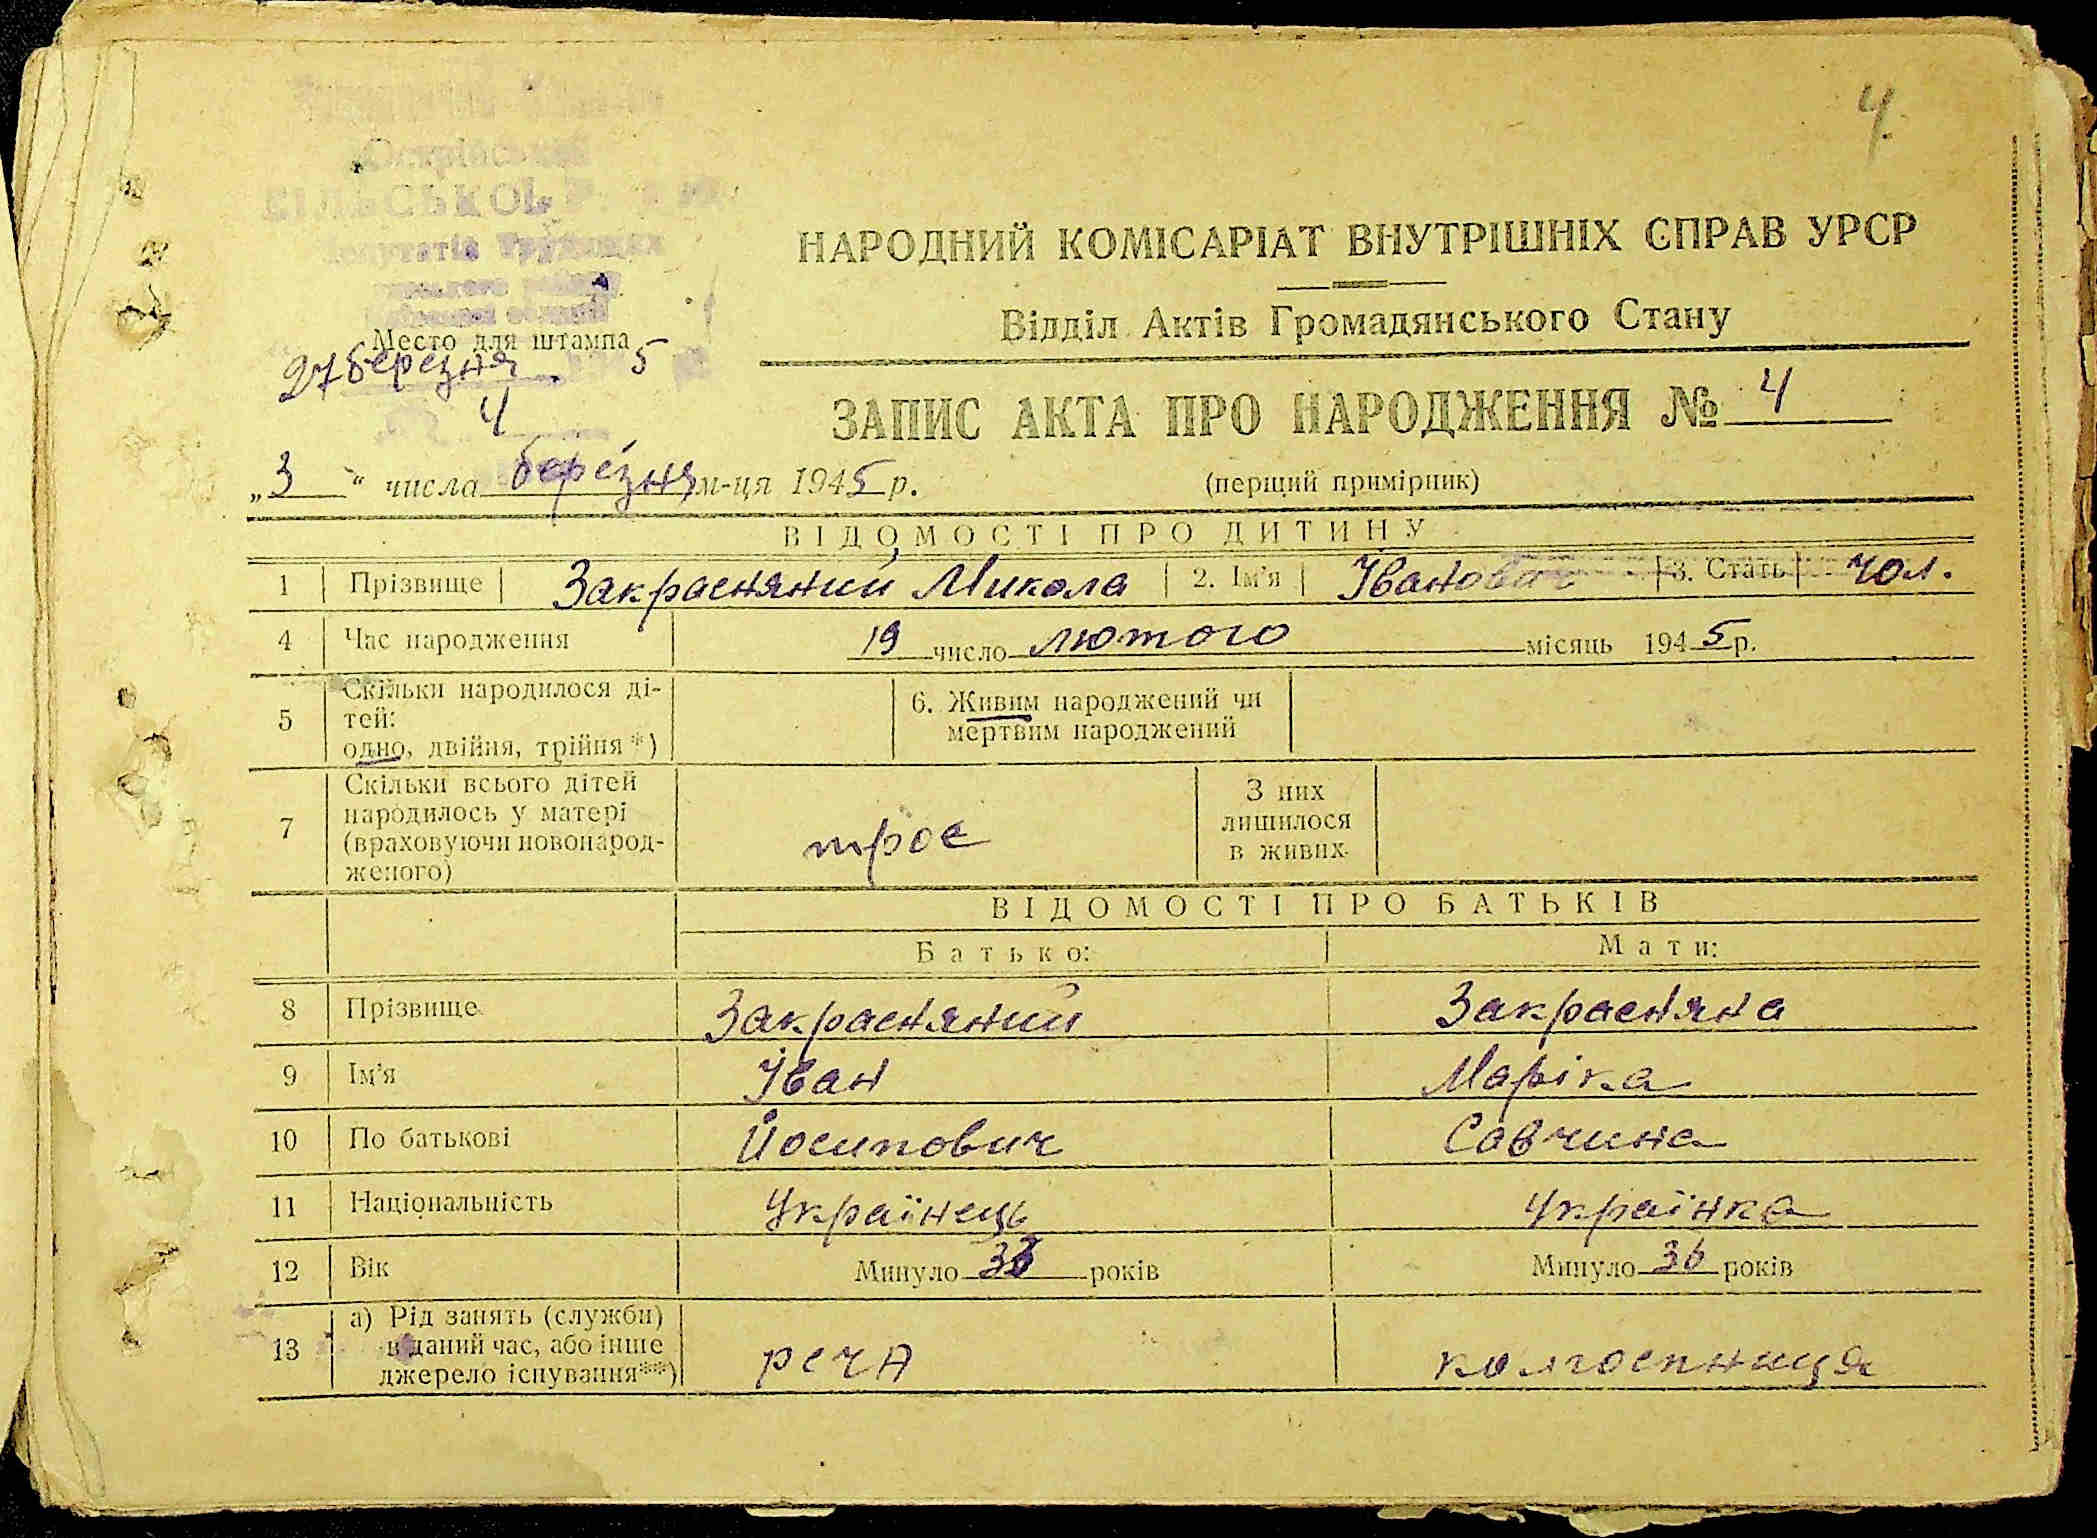 4.
СІЛЬСЬКОЇ
депутатів Трудящих
Место для штампа
27 березня 5
4
НАРОДНИЙ КОМІСАРІАТ ВНУТРІШНІХ СПРАВ УРСР
Відділ Актів Громадянського Стану
ЗАПИС АКТА ПРО НАРОДЖЕННЯ № 4
„3“ числа березня м-ця 1945 р.
(перщий примірник)
ВІДОМОСТІ ПРО ДИТИНУ
1 Прізвище Закрасняний Микола 2. Ім'я Іванович 3. Стать чол.
4 Час народження 19 число лютого місяць 1945 р.
5 Скільки народилося ді-
тей:
одно, двійня, трійня *)
6. Живим народжений чи
мертвим народжений
7 Скільки всього дітей
народилось у матері
(враховуючи новонарод-
женого)
троє
З них
лишилося
в живих
ВІДОМОСТІ ПРО БАТЬКІВ
Батько: Мати:
8 Прізвище Закрасняний Закрасняна
9 Ім'я Іван Маріка
10 По батькові Йосипович Савчина
11 Національність Українець Українка
12 Вік Минуло 33 років Минуло 36 років
13 а) Рід занять (служби)
в даний час, або інше
джерело існування**)
РСЧА колгоспниця